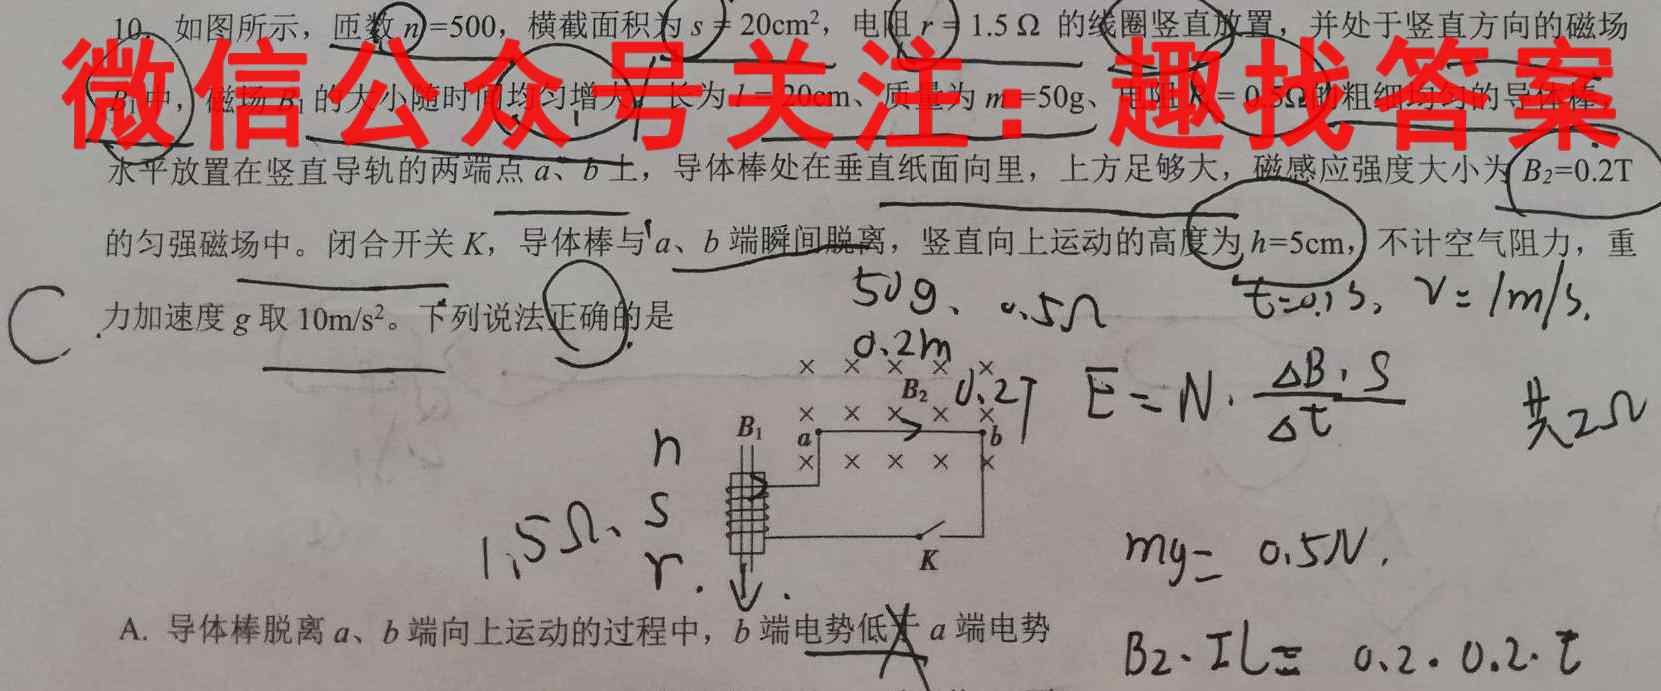 10. 如图所示，匝数 n =500，横截面积为 s = 20cm²，电阻 r = 1.5 Ω 的线圈竖直放置，并处于竖直方向的磁场
微信公众号关注：趣找答案
B₁中，磁场 B₁ 的大小随时间均匀增大，长为 l = 20cm、质量为 m =50g、电阻 = 0.5Ω的粗细均匀的导体棒，
水平放置在竖直导轨的两端点 a、b 上，导体棒处在垂直纸面向里，上方足够大，磁感应强度大小为 B₂=0.2T
的匀强磁场中。闭合开关 K，导体棒与 a、b 端瞬间脱离，竖直向上运动的高度为 h=5cm，不计空气阻力，重
力加速度 g 取 10m/s²。下列说法正确的是
C
50g、0.5Ω
t=0.1s, v=1m/s.
0.2m
B₂ 0.2T
E=N·ΔB·S/Δt
共2Ω
B₁ a b
n
1.5Ω、s
r
K
mg= 0.5N.
A. 导体棒脱离 a、b 端向上运动的过程中，b 端电势低于 a 端电势
B₂·IL= 0.2·0.2·t